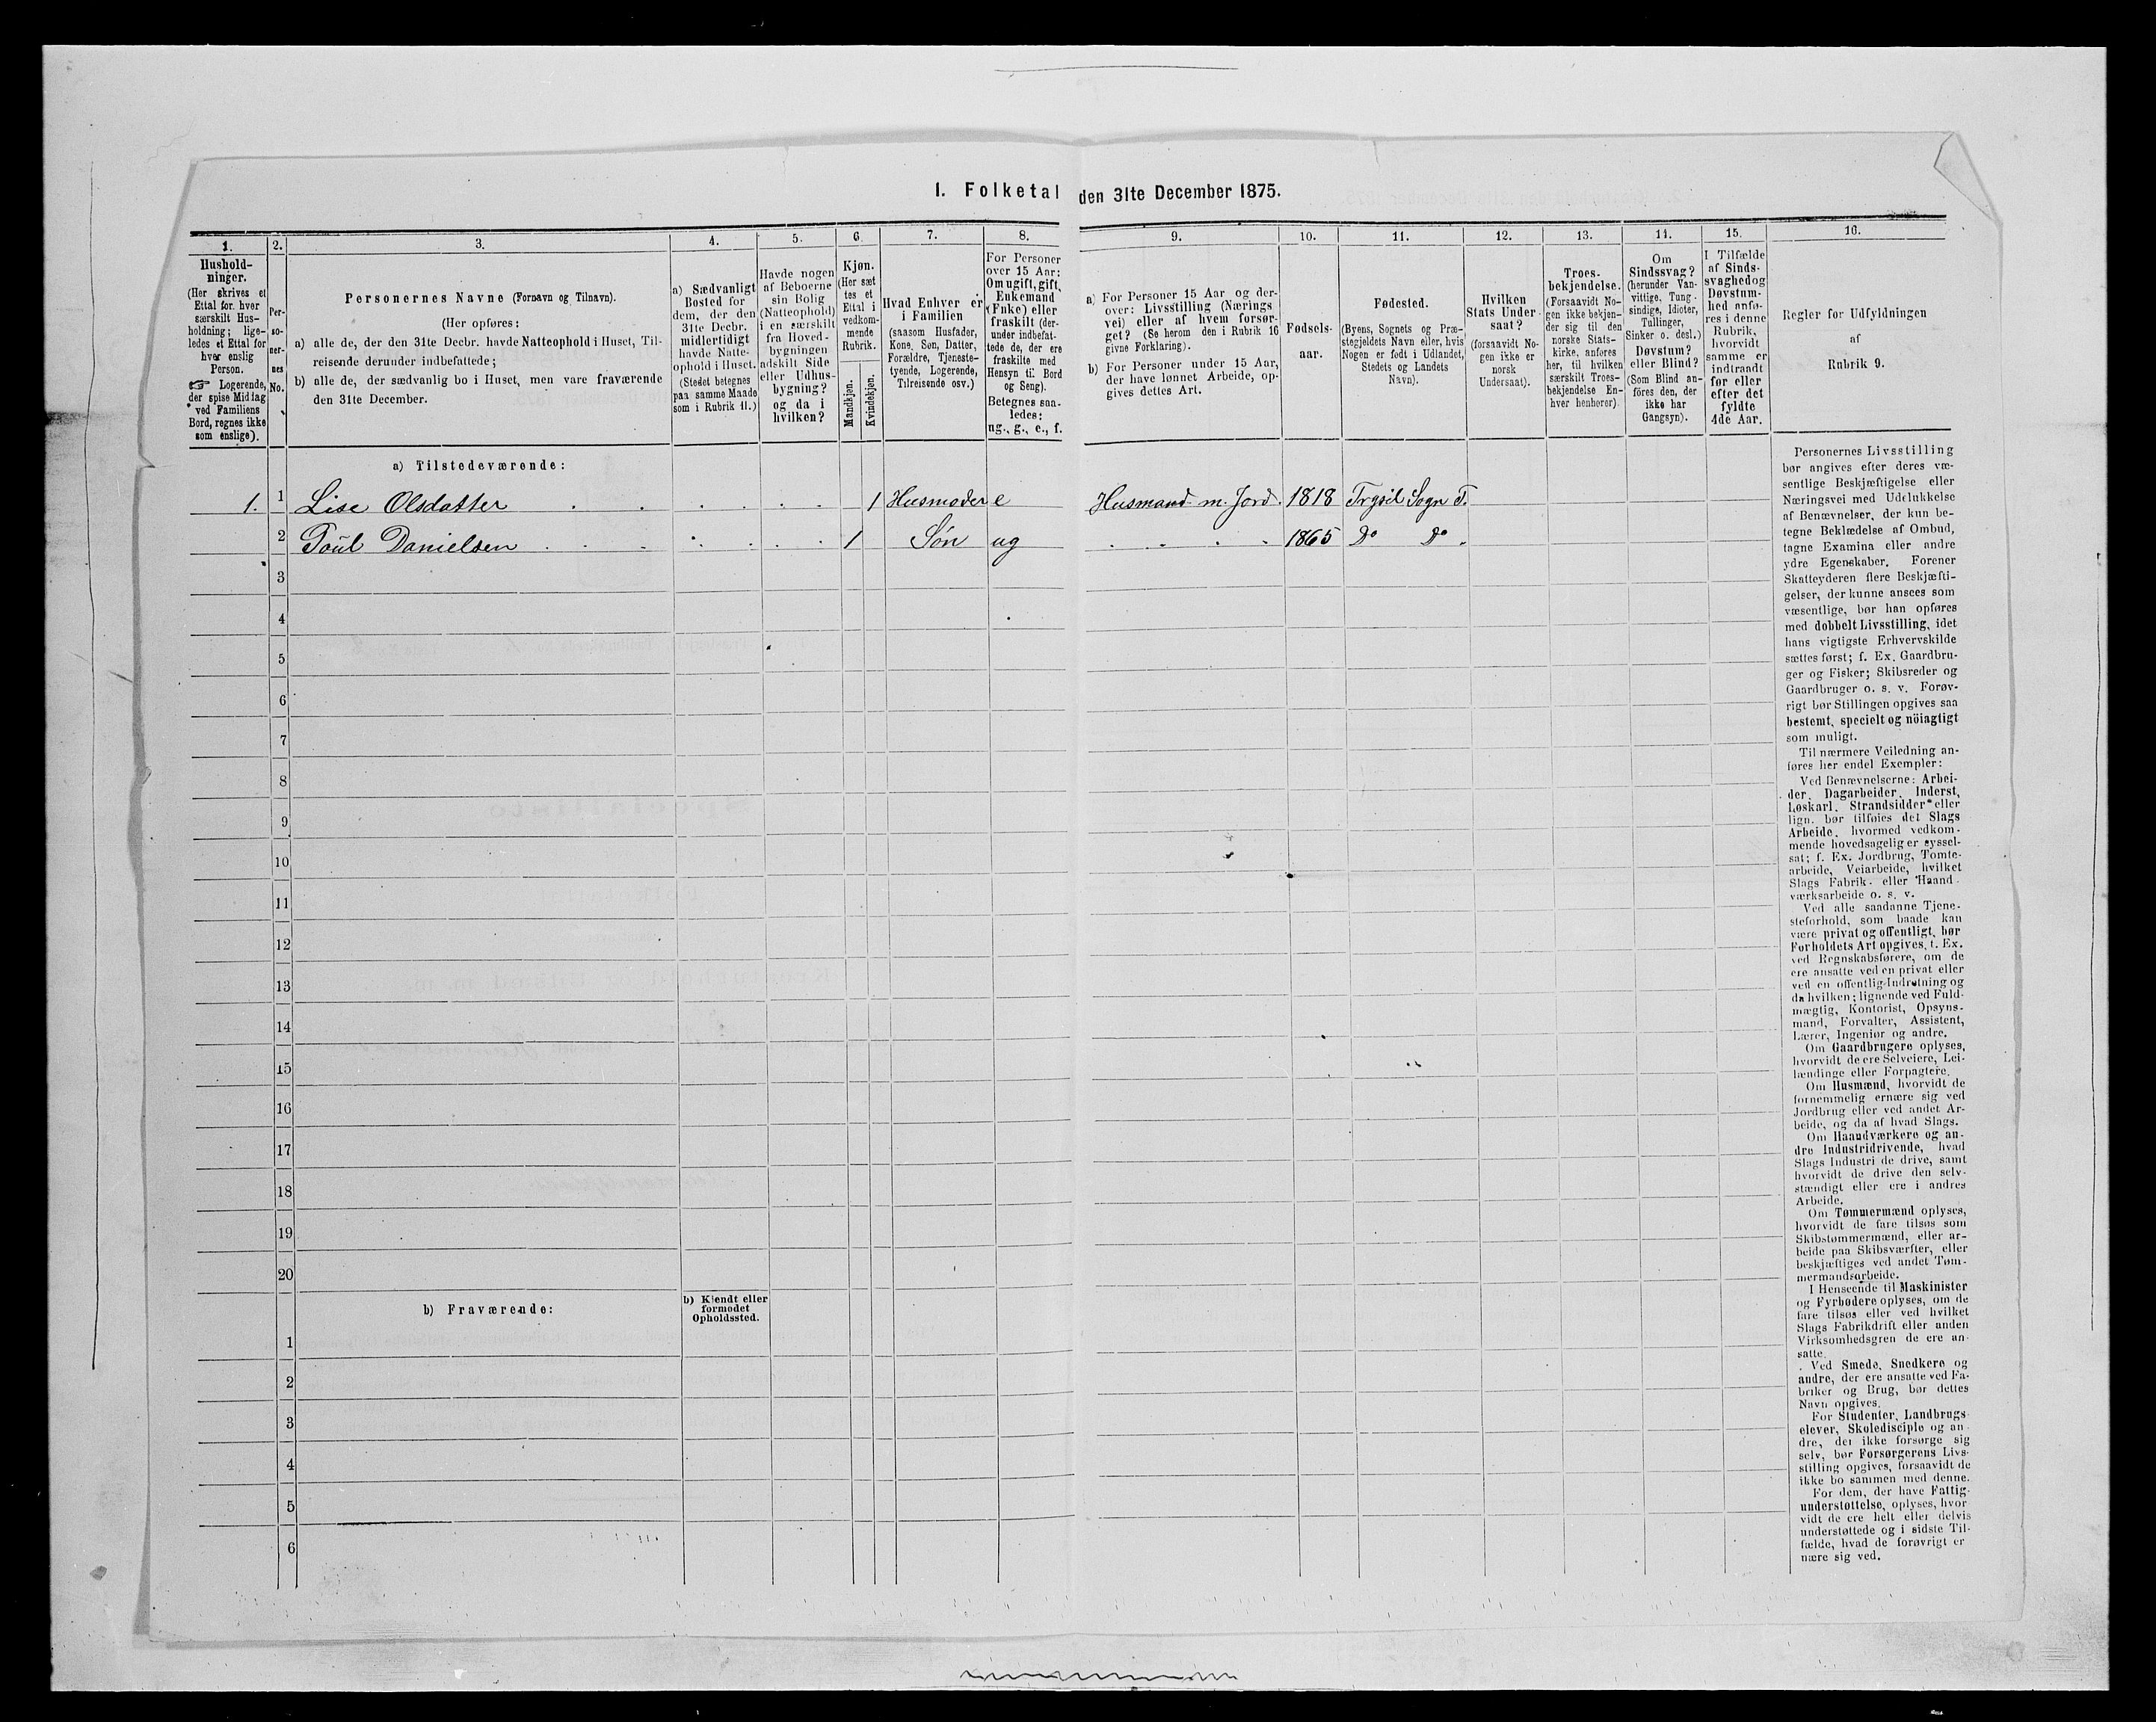 1. Folketal den 31te December 1875.
1.
2.
3.
4.
5.
6.
7.
8.
9.
10.
11.
12.
13.
14.
15.
16.
Hushold-
ninger.
(Her skrives et
Ettal for hver
særskilt Hus-
holdning; lige-
ledes et Ettal for
hver enslig
Person.
☞ Logerende,
der spise Middag
ved Familiens
Bord, regnes ikke
som enslige).
Per-
so-
ner-
nes
No.
Personernes Navne (Fornavn og Tilnavn).
(Her opføres:
a) alle de, der den 31te Decbr. havde Natteophold i Huset, Til-
reisende derunder indbefattede;
b) alle de, der sædvanlig bo i Huset, men vare fraværende
den 31te December.
a) Sædvanligt
Bosted for
dem, der den
31te Decbr.
midlertidigt
havde Natte-
ophold i Huset.
(Stedet betegnes
paa samme Maade
som i Rubrik 11.)
Havde nogen
af Beboerne
sin Bolig
(Natteophold)
i en særskilt
fra Hoved-
bygningen
adskilt Side
eller Udhus-
bygning?
og da i
hvilken?
Kjøn.
(Her sæt
tes et
Ettal i
vedkom-
mende
Rubrik.
Mandkjøn.
Kvindekjøn.
Hvad Enhver er
i Familien
(saasom Husfader,
Kone, Søn, Datter,
Forældre, Tjeneste-
tyende, Logerende,
Tilreisende osv.)
For Personer
over 15 Aar:
Om ugift, gift,
Enkemand
(Enke) eller
fraskilt (der-
under indbefat-
tede de, der ere
fraskilte med
Hensyn til Bord
og Seng).
Betegnes saa-
ledes:
ug., g., e., f.
a) For Personer 15 Aar og der-
over: Livsstilling (Nærings
vei) eller af hvem forsør-
get? (Se herom den i Rubrik 16
givne Forklaring).
b) For Personer under 15 Aar,
der have lønnet Arbeide, op-
gives dettes Art.
Fødsels-
aar.
Fødested.
(Byens, Sognets og Præ-
stegjeldets Navn eller, hvis
Nogen er født i Udlandet,
Stedets og Landets
Navn).
Hvilken
Stats Under-
saat?
(forsaavidt No-
gen ikke er
norsk
Undersaat).
Troes-
bekjendelse.
(Forsaavidt No-
gen ikke bekjen-
der sig til den
norske Stats-
kirke, anføres
her, til hvilken
særskilt Troes-
bekjendelse En-
hver henhører).
Om
Sindssvag?
(herunder Van-
vittige, Tung-
sindige, Idioter,
Tullinger,
Sinker o. desl.)
Døvstum?
eller Blind?
(Som Blind an-
føres den, der
ikke har
Gangsyn).
I Tilfælde
af Sinds-
svaghed og
Døvstum-
hed anfø-
res i denne
Rubrik,
hvorvidt
samme er
indtraadt
før eller
efter det
fyldte
4de Aar.
Regler for Udfyldningen
af
Rubrik 9.
a) Tilstedeværende:
1. 1 Lise Olsdatter 1 Husmoder e Husmand m. Jord. 1818 Trysil Sogn T.
2 Poul Danielsen 1 Søn ug 1865 Do Do
3
4
5
6
7
8
9
10
11
12
13
14
15
16
17
18
19
20
b) Fraværende:
b) Kjendt eller
formodet
Opholdssted.
1
2
3
4
5
6
Personernes Livsstilling
bør angives efter deres væ-
sentlige Beskjæftigelse eller
Næringsvei med Udelukkelse
af Benævnelser, der kun be-
tegne Beklædelse af Ombud,
tagne Examina eller andre
ydre Egenskaber. Forener
Skatteyderen flere Beskjæfti-
gelser, der kunne ansees som
væsentlige, bør han opføres
med dobbelt Livsstilling, idet
hans vigtigste Erhvervskilde
sættes først; f. Ex. Gaardbru-
ger og Fisker; Skibsreder og
Gaardbruger o. s. v. Forøv-
rigt bør Stillingen opgives saa
bestemt, specielt og nöiagtigt
som muligt.
Til nærmere Veiledning an-
føres her endel Exempler:
Ved Benævnelserne: Arbei-
der, Dagarbeider, Inderst,
Løskarl, Strandsidder eller
lign. bør tilføies det Slags
Arbeide, hvormed vedkom-
mende hovedsagelig er syssel-
sat; f. Ex. Jordbrug, Tomte-
arbeide, Veiarbeide, hvilket
Slags Fabrik- eller Haand-
værksarbeide o. s. v.
Ved alle saadanne Tjene-
steforhold, som baade kan
være privat og offentligt, bør
Forholdets Art opgives, f. Ex.
ved Regnskabsførere, om de
ere ansatte ved en privat eller
ved en offentlig Indretning og
da hvilken; lignende ved Fuld-
mægtig, Kontorist, Opsyns-
mand, Forvalter, Assistent,
Lærer, Ingeniør og andre.
Om Gaardbrugere oplyses,
hvorvidt de ere Selveiere, Lei-
lændinge eller Forpagtere.
Om Husmænd, hvorvidt de
fornemmelig ernære sig ved
Jordbrug eller ved andet Ar-
beide, og da af hvad Slags.
Om Haandværkere og an-
dre Industridrivende, hvad
Slags Industri de drive, samt
hvorvidt de drive den selv-
stændigt eller ere i andres
Arbeide.
Om Tømmermænd oplyses,
hvorvidt de fare tilsøs som
Skibstømmermænd, eller ar-
beide paa Skibsværfter, eller
beskjæftiges ved andet Tøm-
mermandsarbeide.
I Henseende til Maskinister
og Fyrbødere oplyses, om de
fare tilsøs eller ved hvilket
Slags Fabrikdrift eller anden
Virksomhedsgren de ere an-
satte.
Ved Smede, Snedkere og
andre, der ere ansatte ved Fa-
briker og Brug, bør dettes
Navn opgives.
For Studenter, Landbrugs-
elever, Skoledisciple og an-
dre, der ikke forsørge sig
selv, bør Forsørgerens Livs-
stilling opgives, forsaavidt de
ikke bo sammen med denne.
For dem, der have Fattig-
understøttelse, oplyses, hvor
vidt de ere helt eller delvis
understøttede og i sidste Til-
fælde, hvad de forøvrigt er
nære sig ved.